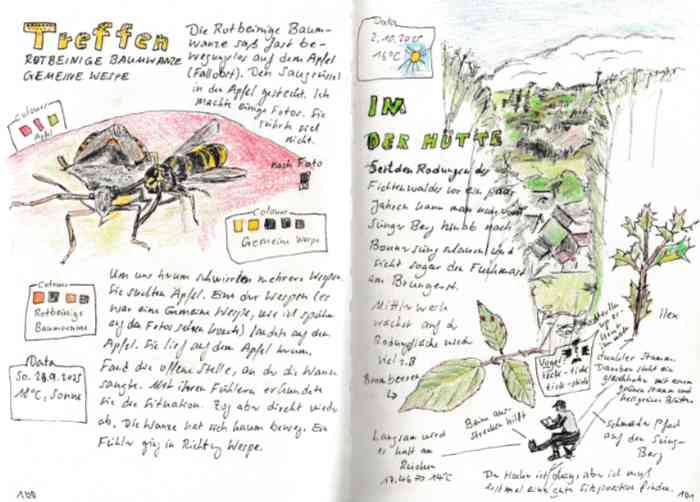 Treffen
ROTBEINIGE BAUMWANZE
GEMEINE WESPE
Die Rotbeinige Baum-
wanze saß fast be-
wegungslos auf dem Apfel
(Fallobst). Den Saugrüssel
in den Apfel gesteckt. Ich
machte einige Fotos. Sie
rührte sich
nicht.
nach Foto
Colours
Apfel
Colours
Gemeine Wespe
Colours
Rotbeinige
Baumwanze
Data
So. 28.9.2025
18°C, Sonne
Um uns herum schwirrten mehrere Wespen.
Sie suchten Äpfel. Eine der Wespen (es
war eine Gemeine Wespe, wie ich später
auf den Fotos sehen konnte) landete auf dem
Apfel. Sie lief auf dem Apfel herum.
Fand die offene Stelle, an der die Wanze
saugte. Mit ihren Fühlern erkundete
sie die Situation. Zog aber direkt wieder
ab. Die Wanze hat sich kaum bewegt. Ein
Fühler ging in Richtung Wespe.
180
Data
2.10.2025
16°C
IN
DER HÜTTE
Seit den Rodungen des
Fichtenwaldes vor ein paar
Jahren kann man
Berg hinab nach
schauen und
sieht sogar den Funkmast
am
Mittlerweile
wächst auf der
Rodungsfläche
viel z.B
Brombeeren
Ilex
Vögel
tück-tück
tick-tick
dunkler Stamm
Daneben steht ein
mit einem
grünen Stamm und
hellgrünen Blättern
Beim aus-
strecken hilft
Schmaler Pfad
auf den
Berg
Langsam wird
es kalt am
Rücken
17.46 14°C
Der Hocker ist okay, aber ich muss
erstmal eine gute Sitzposition finden.
181